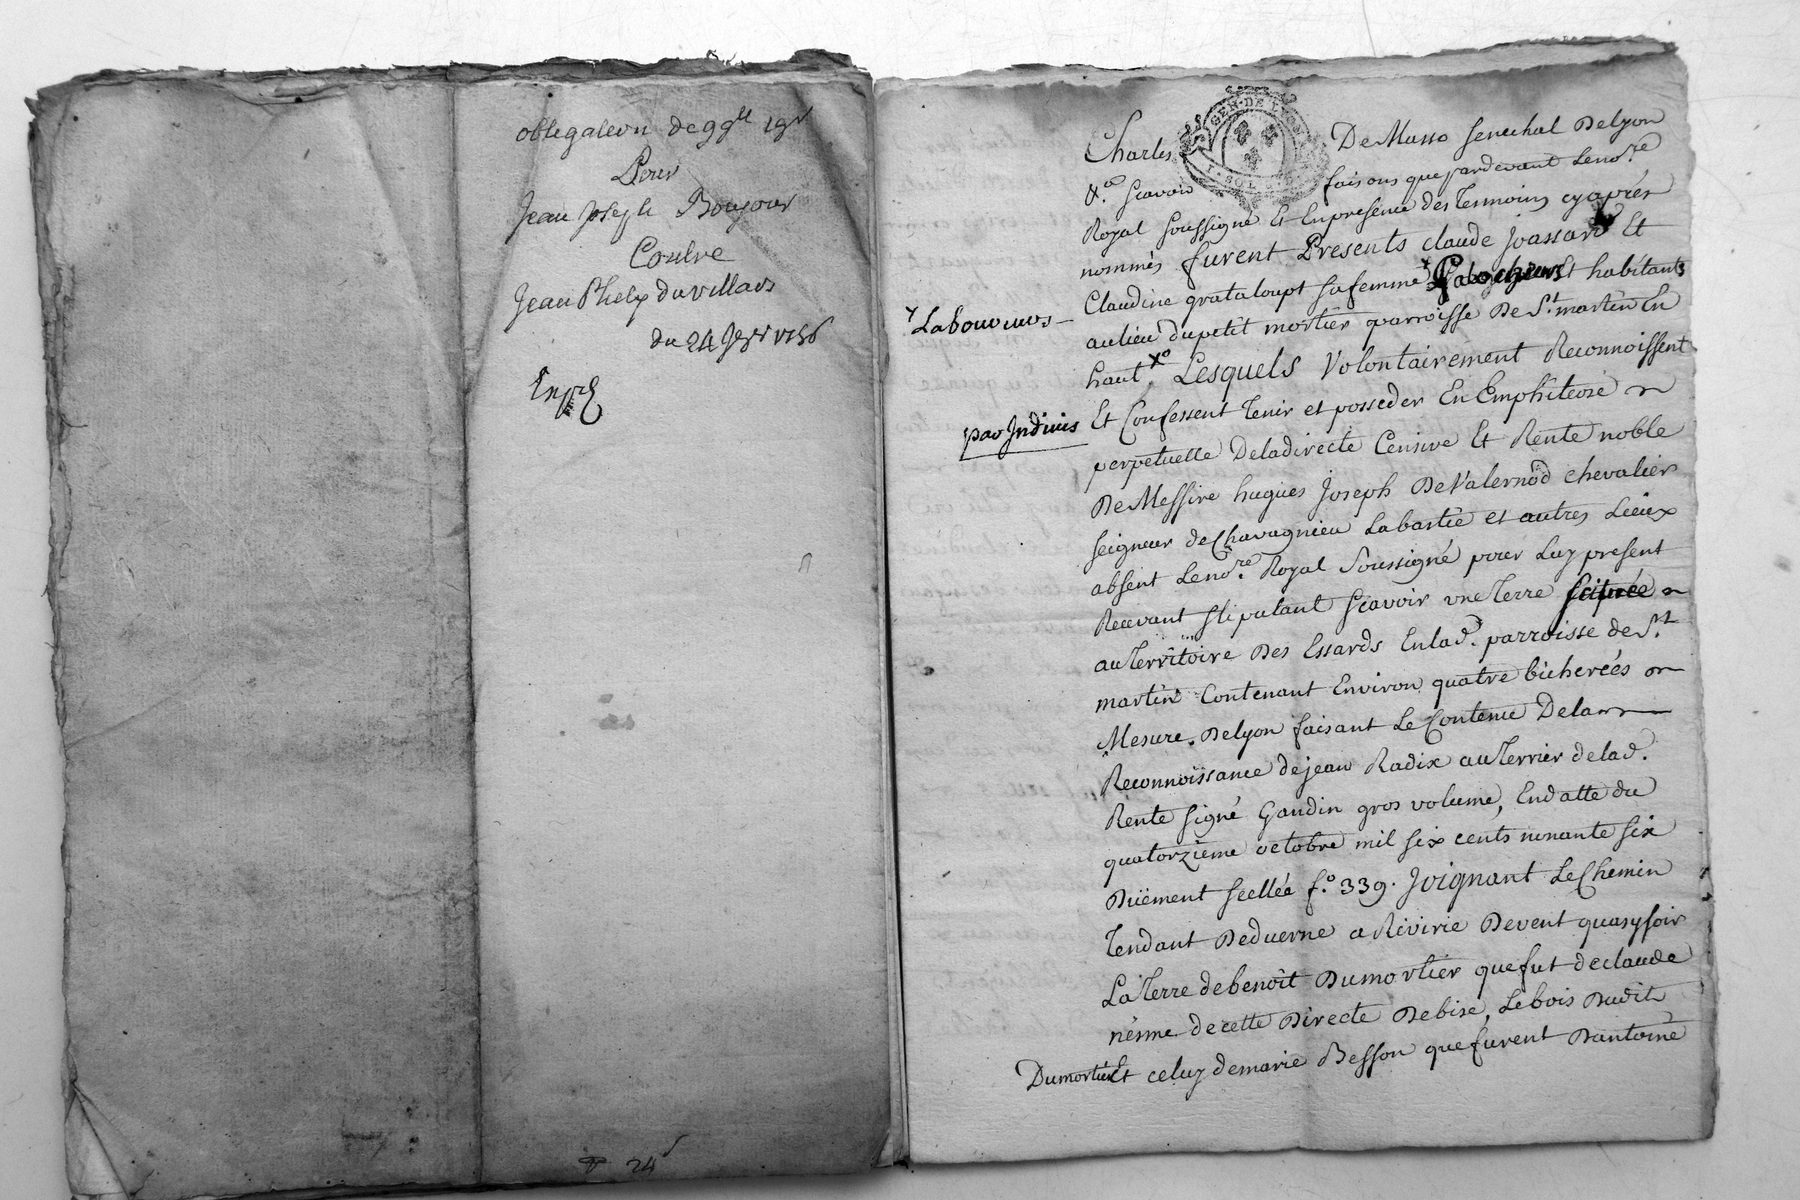 obligation de 99ᵗᵗ 19ˢ
Pour
Jean Joseph Boujour
Contre
Jean Phelip duvillars
du 24
24ˢ
GEN·DE LYON
SOLS
Charles De Masso Senechal De Lyon
&.ᵃ Scavoir faisons que pardevant Le noʳᵉ
Royal soussigné Et En presence des Temoins cyaprés
nommés furent Presents claude Joassard Et
Claudine grataloupt sa femme Et habitants
ˣ Laboureurs
au lieu du petit mortier parroisse De Sᵗ martin En
haut ˣᵒ Lesquels Volontairement Reconnoissent
par Indivis
Et Confessent Tenir et posseder En Emphiteose
perpetuelle De la directe Censive Et Rente noble
De Messire hugues Joseph De Valernod chevalier
seigneur de Chavagnieu Labastie et autres Lieux
absent Le noʳᵉ Royal Soussigné pour Luy present
Recevant stipulant scavoir une Terre
au Territoire Des Essards En lad. parroisse de Sᵗ
martin Contenant Environ quatre bicherées
Mesure De lyon faisant Le Contenu De la
Reconnoissance de jean Radix au Terrier de lad.
Rente signé Gaudin gros volume, En datte du
quatorzieme octobre mil six cents nonante six
Duement scellée f.º 339. Joignant Le Chemin
Tendant De duerne a Rivirie De vent quasy soir
La Terre de benoit Dumortier que fut de claude
néime de cette Directe De bise, Le bois Dudit
Dumortier Et celuy de marie Besson que furent D'antoine